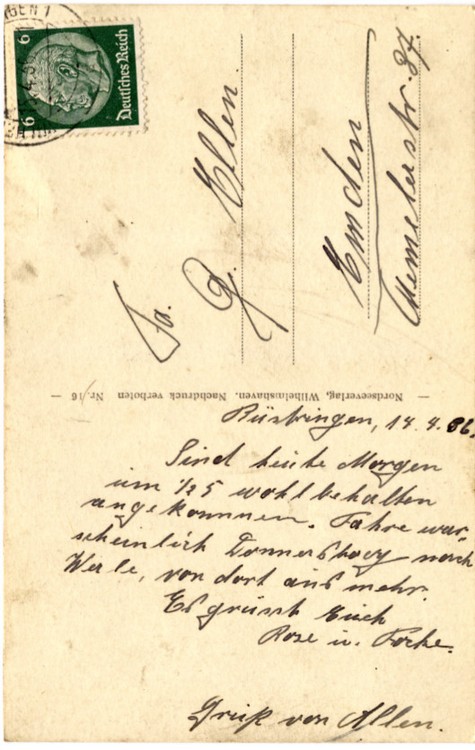 Deutsches Reich
6
6
Fa.
J. Ellen
Emden
Memelerstr. 37.
Nordseeverlag, Wilhelmshaven. Nachdruck verboten Nr. 16
Rüstringen, 14. 4. 36.
Sind heute Morgen
um ½5 wohlbehalten
angekommen. Fahre war-
scheinlich Donnerstag nach
Werle, von dort aus mehr.
Es grüsst Euch
Rose u. Focke.
Gruß von Allen.